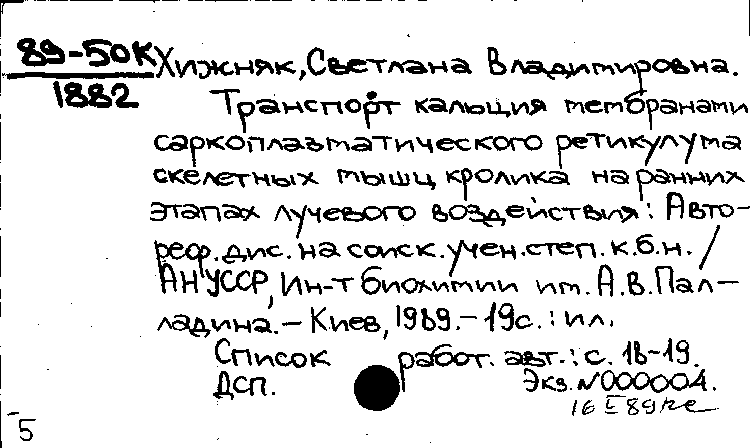 89-50К Хижняк, Светлана Владимировна.
1882
Транспорт кальция мембранами
саркоплазматического ретикулума
скелетных мышц кролика на ранних
этапах лучевого воздействия: Авто-
реф. дис. на соиск. учен. степ. к.б.н. /
АН УССР, Ин-т биохимии им. А.В. Пал-
ладина. - Киев, 1989. - 19с. : ил.
Список работ. авт.: с. 18-19.
ДСП. Экз. N000004.
5